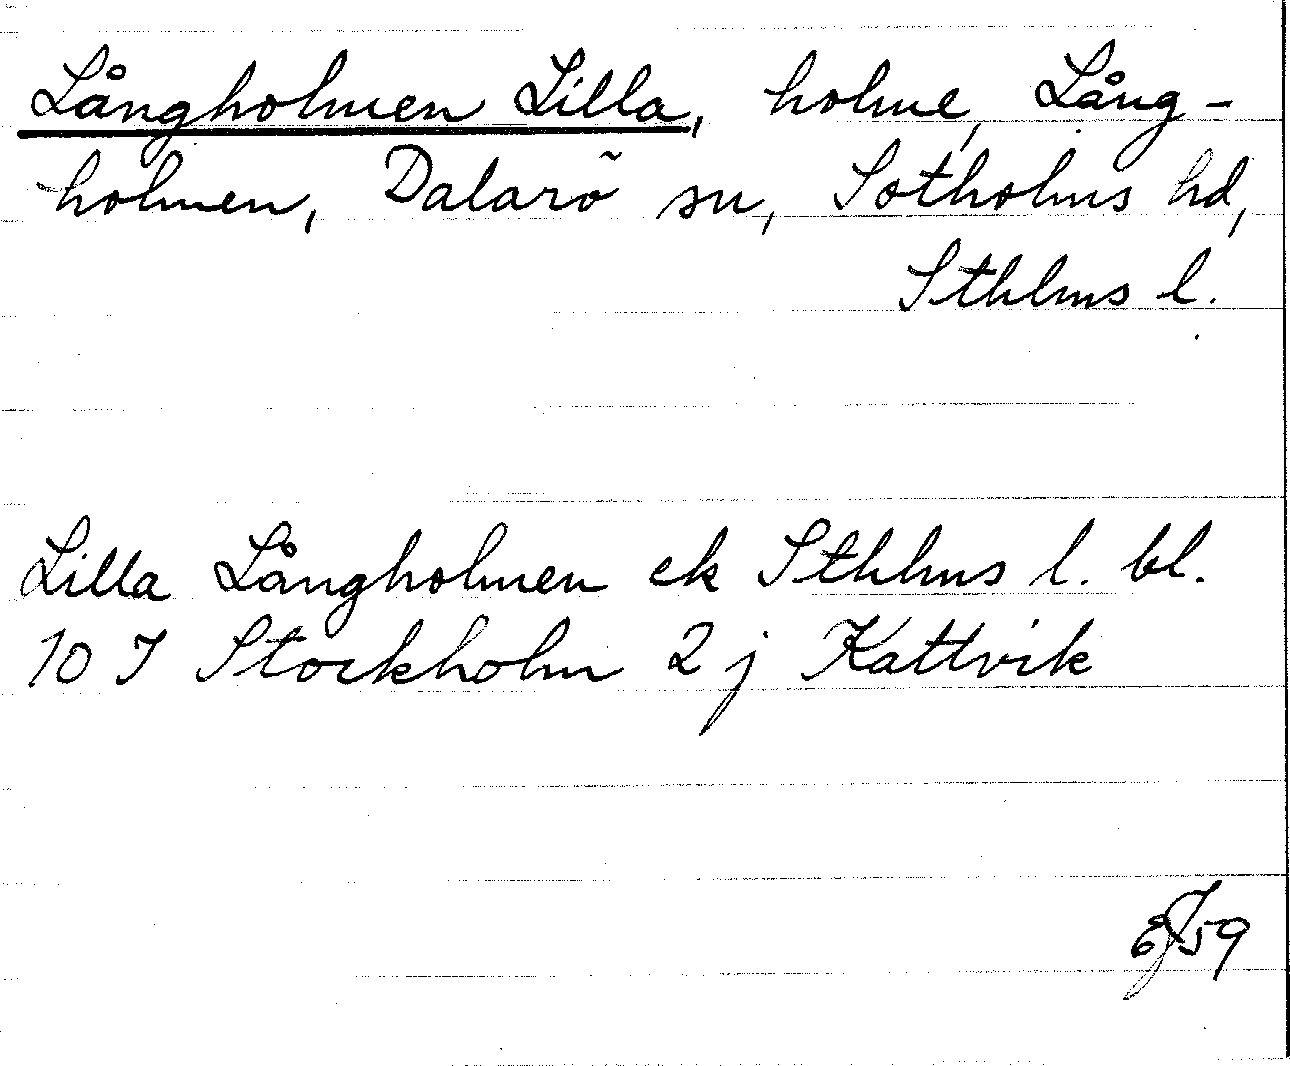 Långholmen Lilla, holme, Lång-
holmen, Dalarö sn, Sotholms hd,
Sthlms l.
Lilla Långholmen ek Sthlms l. bl.
10 I Stockholm 2 j Kattvik
59